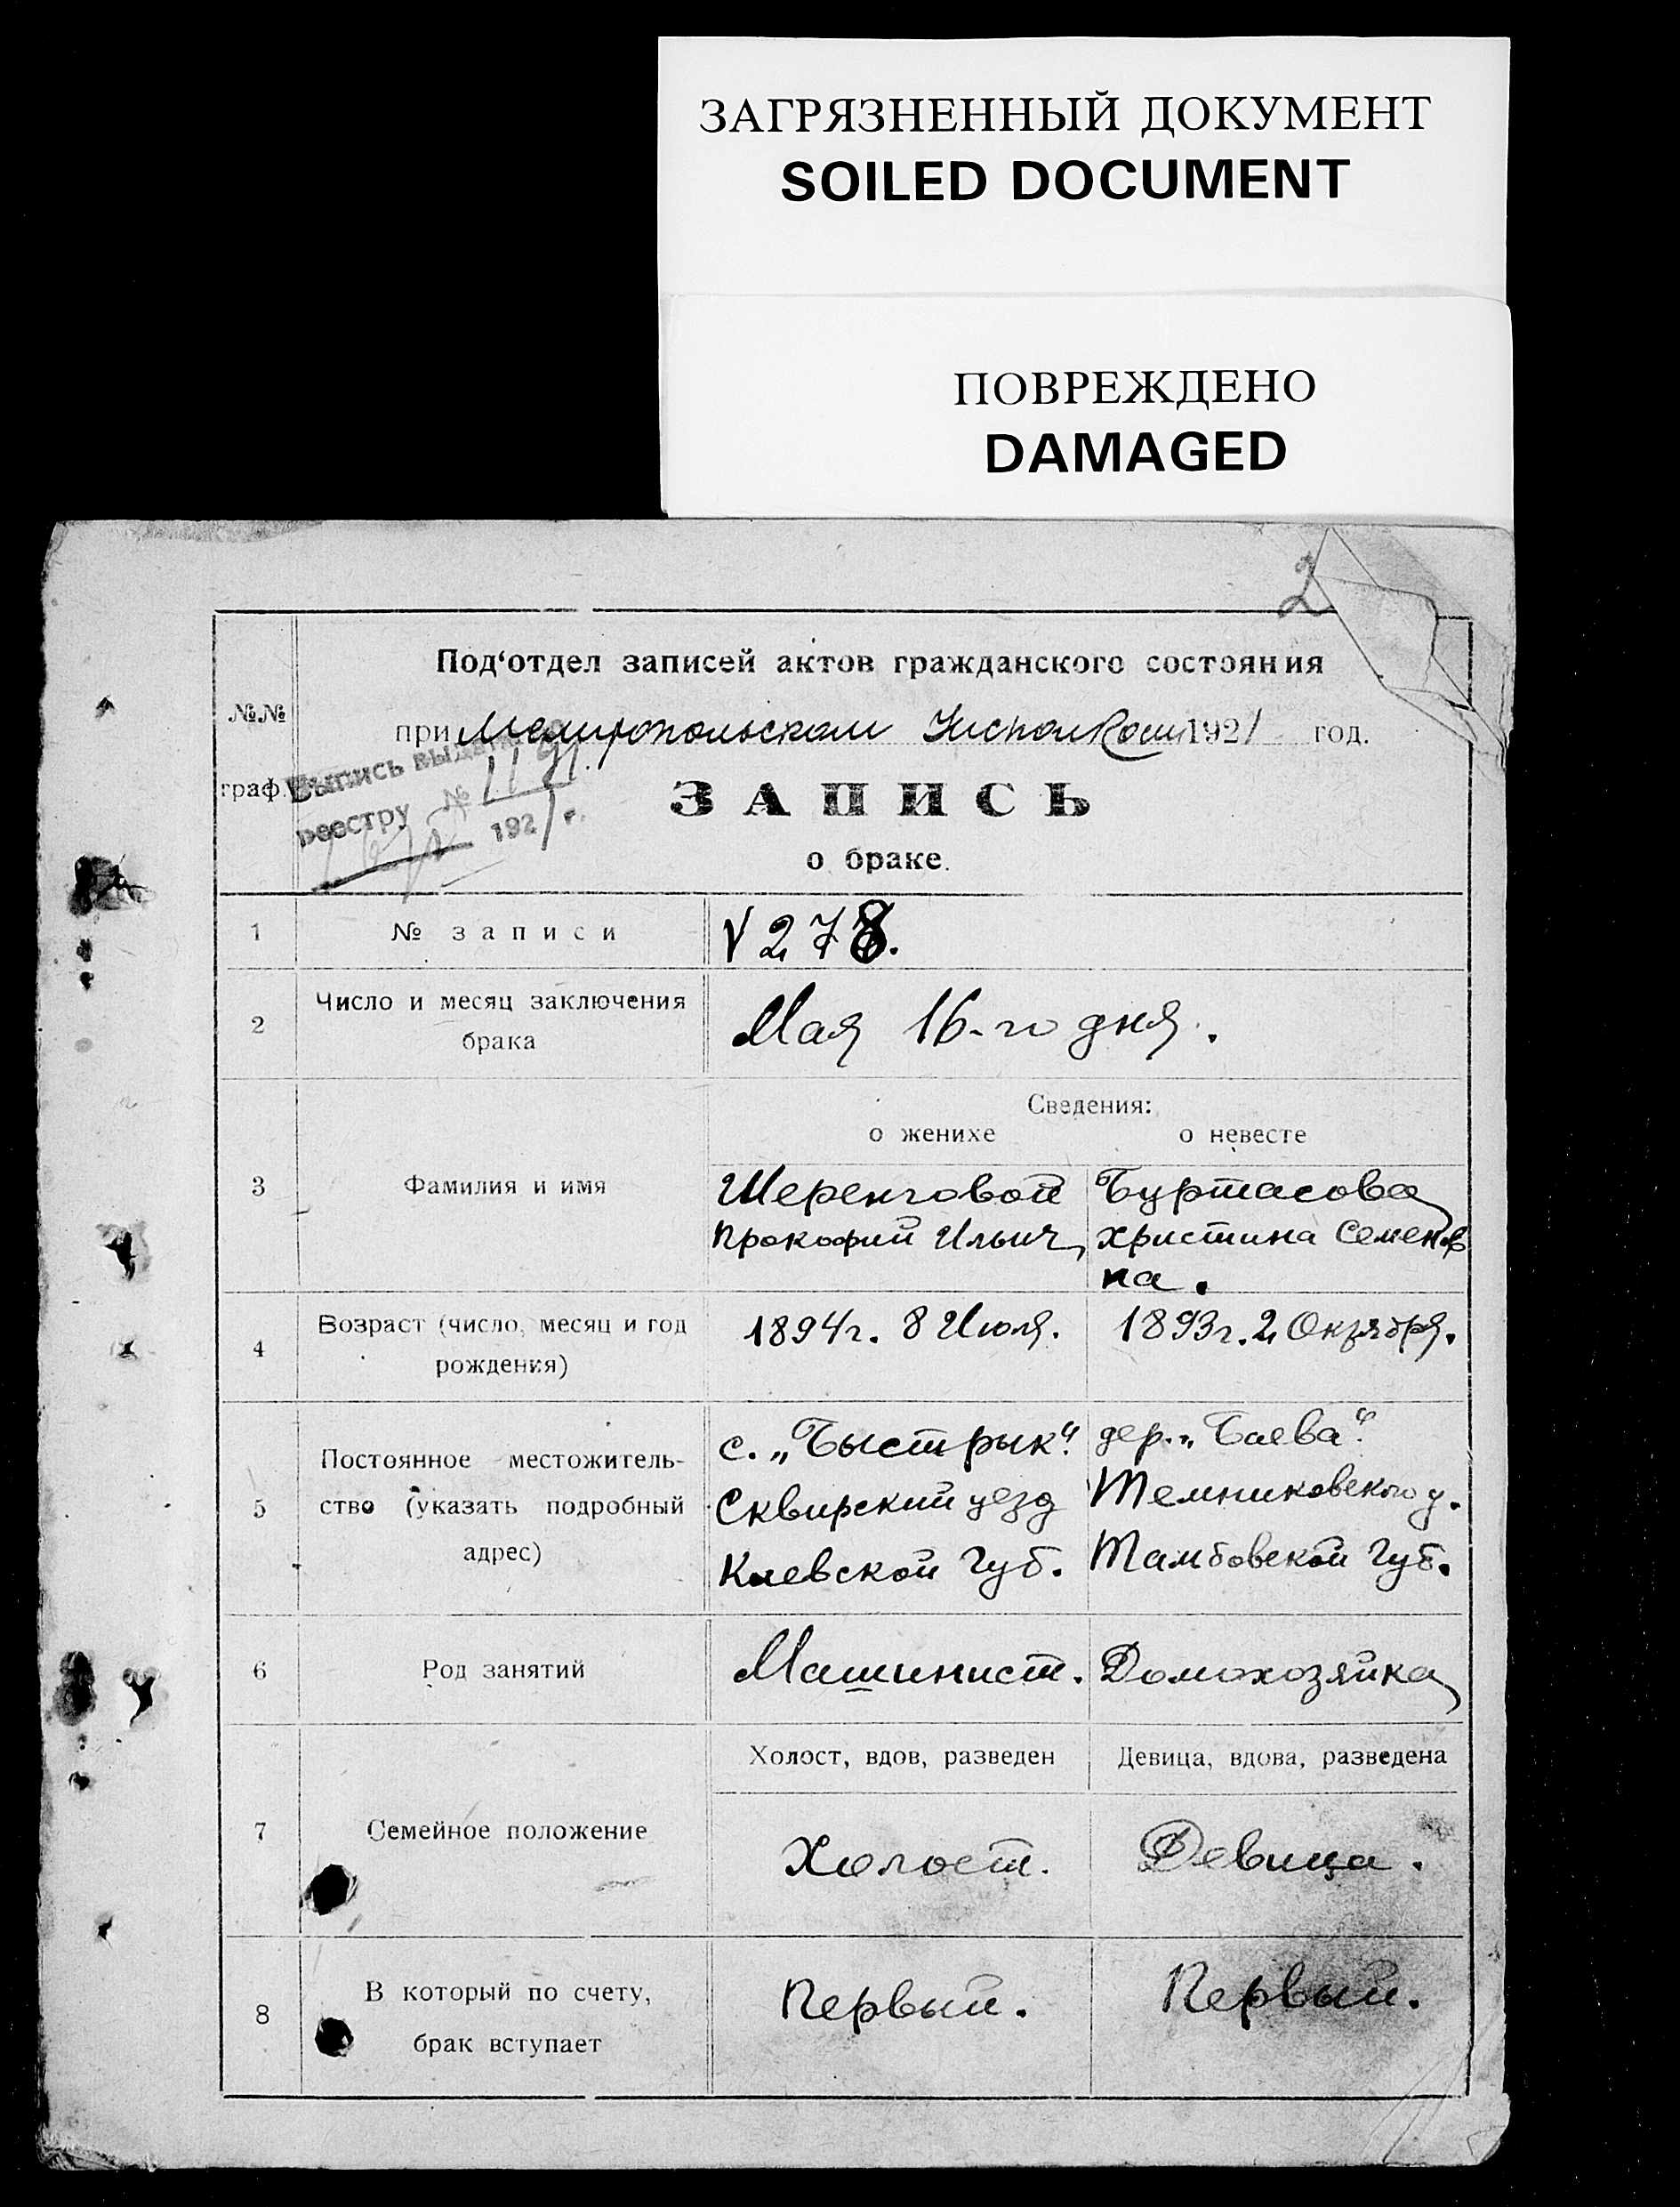 ЗАГРЯЗНЕННЫЙ ДОКУМЕНТ
SOILED DOCUMENT
ПОВРЕЖДЕНО
DAMAGED
2
Под‘отдел записей актов гражданского состояния
№№
граф.
при Мелитопольском Исполкоме 1921 год.
Выпись выдана
реестру № 1191
1921 г.
ЗАПИСЬ
о браке.
1 № записи № 278.
2 Число и месяц заключения
брака
Мая 16-го дня.
Сведения:
о женихе о невесте
3 Фамилия и имя
Шеренговой
Прокофий Ильич
Буртасова
Христина Семенов
на.
4 Возраст (число, месяц и год
рождения)
1894 г. 8 Июля.
1893 г. 2 Октября.
5 Постоянное местожитель-
ство (указать подробный
адрес)
с. „Быстрык“.
Сквирский уезд
Киевской Губ.
дер. „Баева“.
Темниковского у.
Тамбовской Губ.
6 Род занятий
Машинист.
Домохозяйка
7 Семейное положение
Холост, вдов, разведен
Девица, вдова, разведена
Холост.
Девица.
8 В который по счету,
брак вступает
Первый.
Первый.